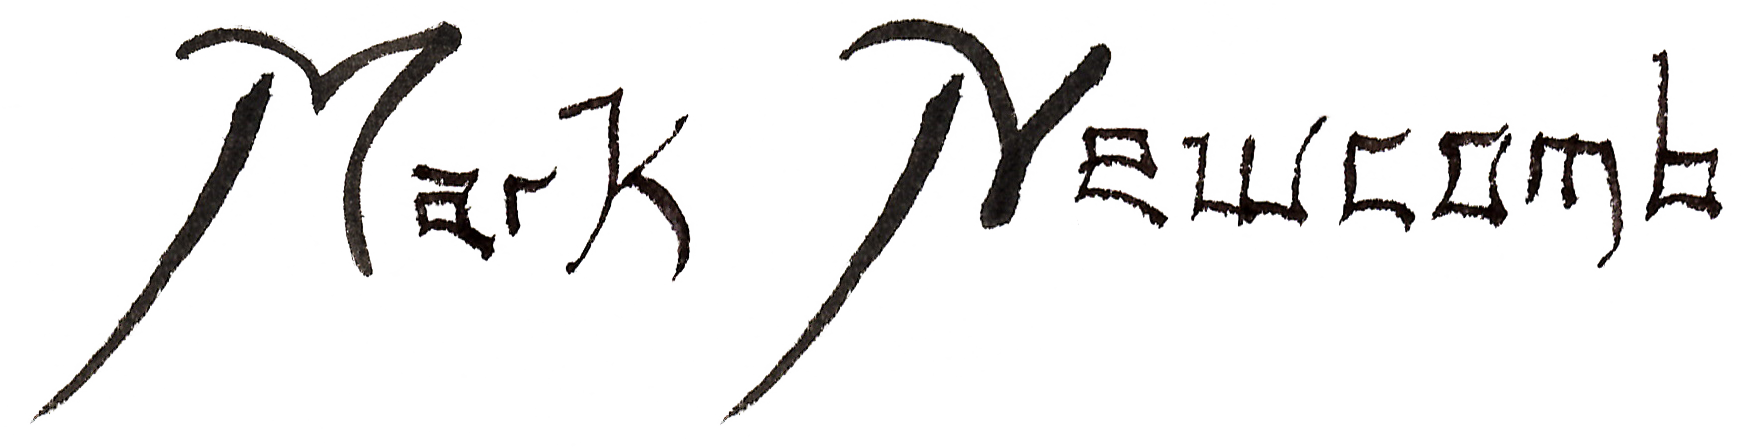 Mark Newcomb